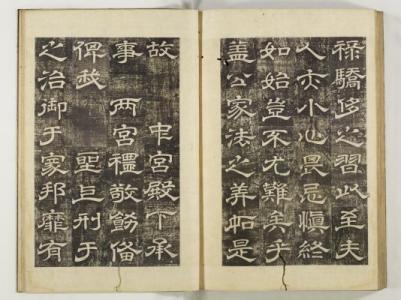 祿驕侈之習此至夫
人亦小心畏忌慎終
如始豈不尤難矣乎
盖公家法之如是
故 中宮殿下承
事 兩宮禮敬飭備
俾我 聖上刑于
之治御于家邦靡有